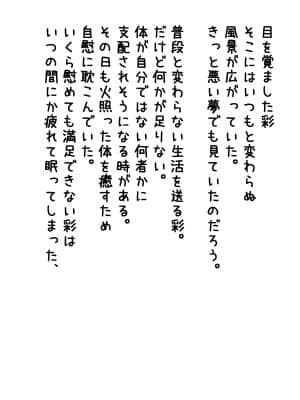 目を覚ました彩
そこにはいつもと変わらぬ
風景が広がっていた。
きっと悪い夢でも見ていたのだろう。
普段と変わらない生活を送る彩。
だけど何かが足りない。
体が自分ではない何者かに
支配されそうになる時がある。
その日も火照った体を癒すため
自慰に耽こんでいた。
いくら慰めても満足できない彩は
いつの間にか疲れて眠ってしまった、